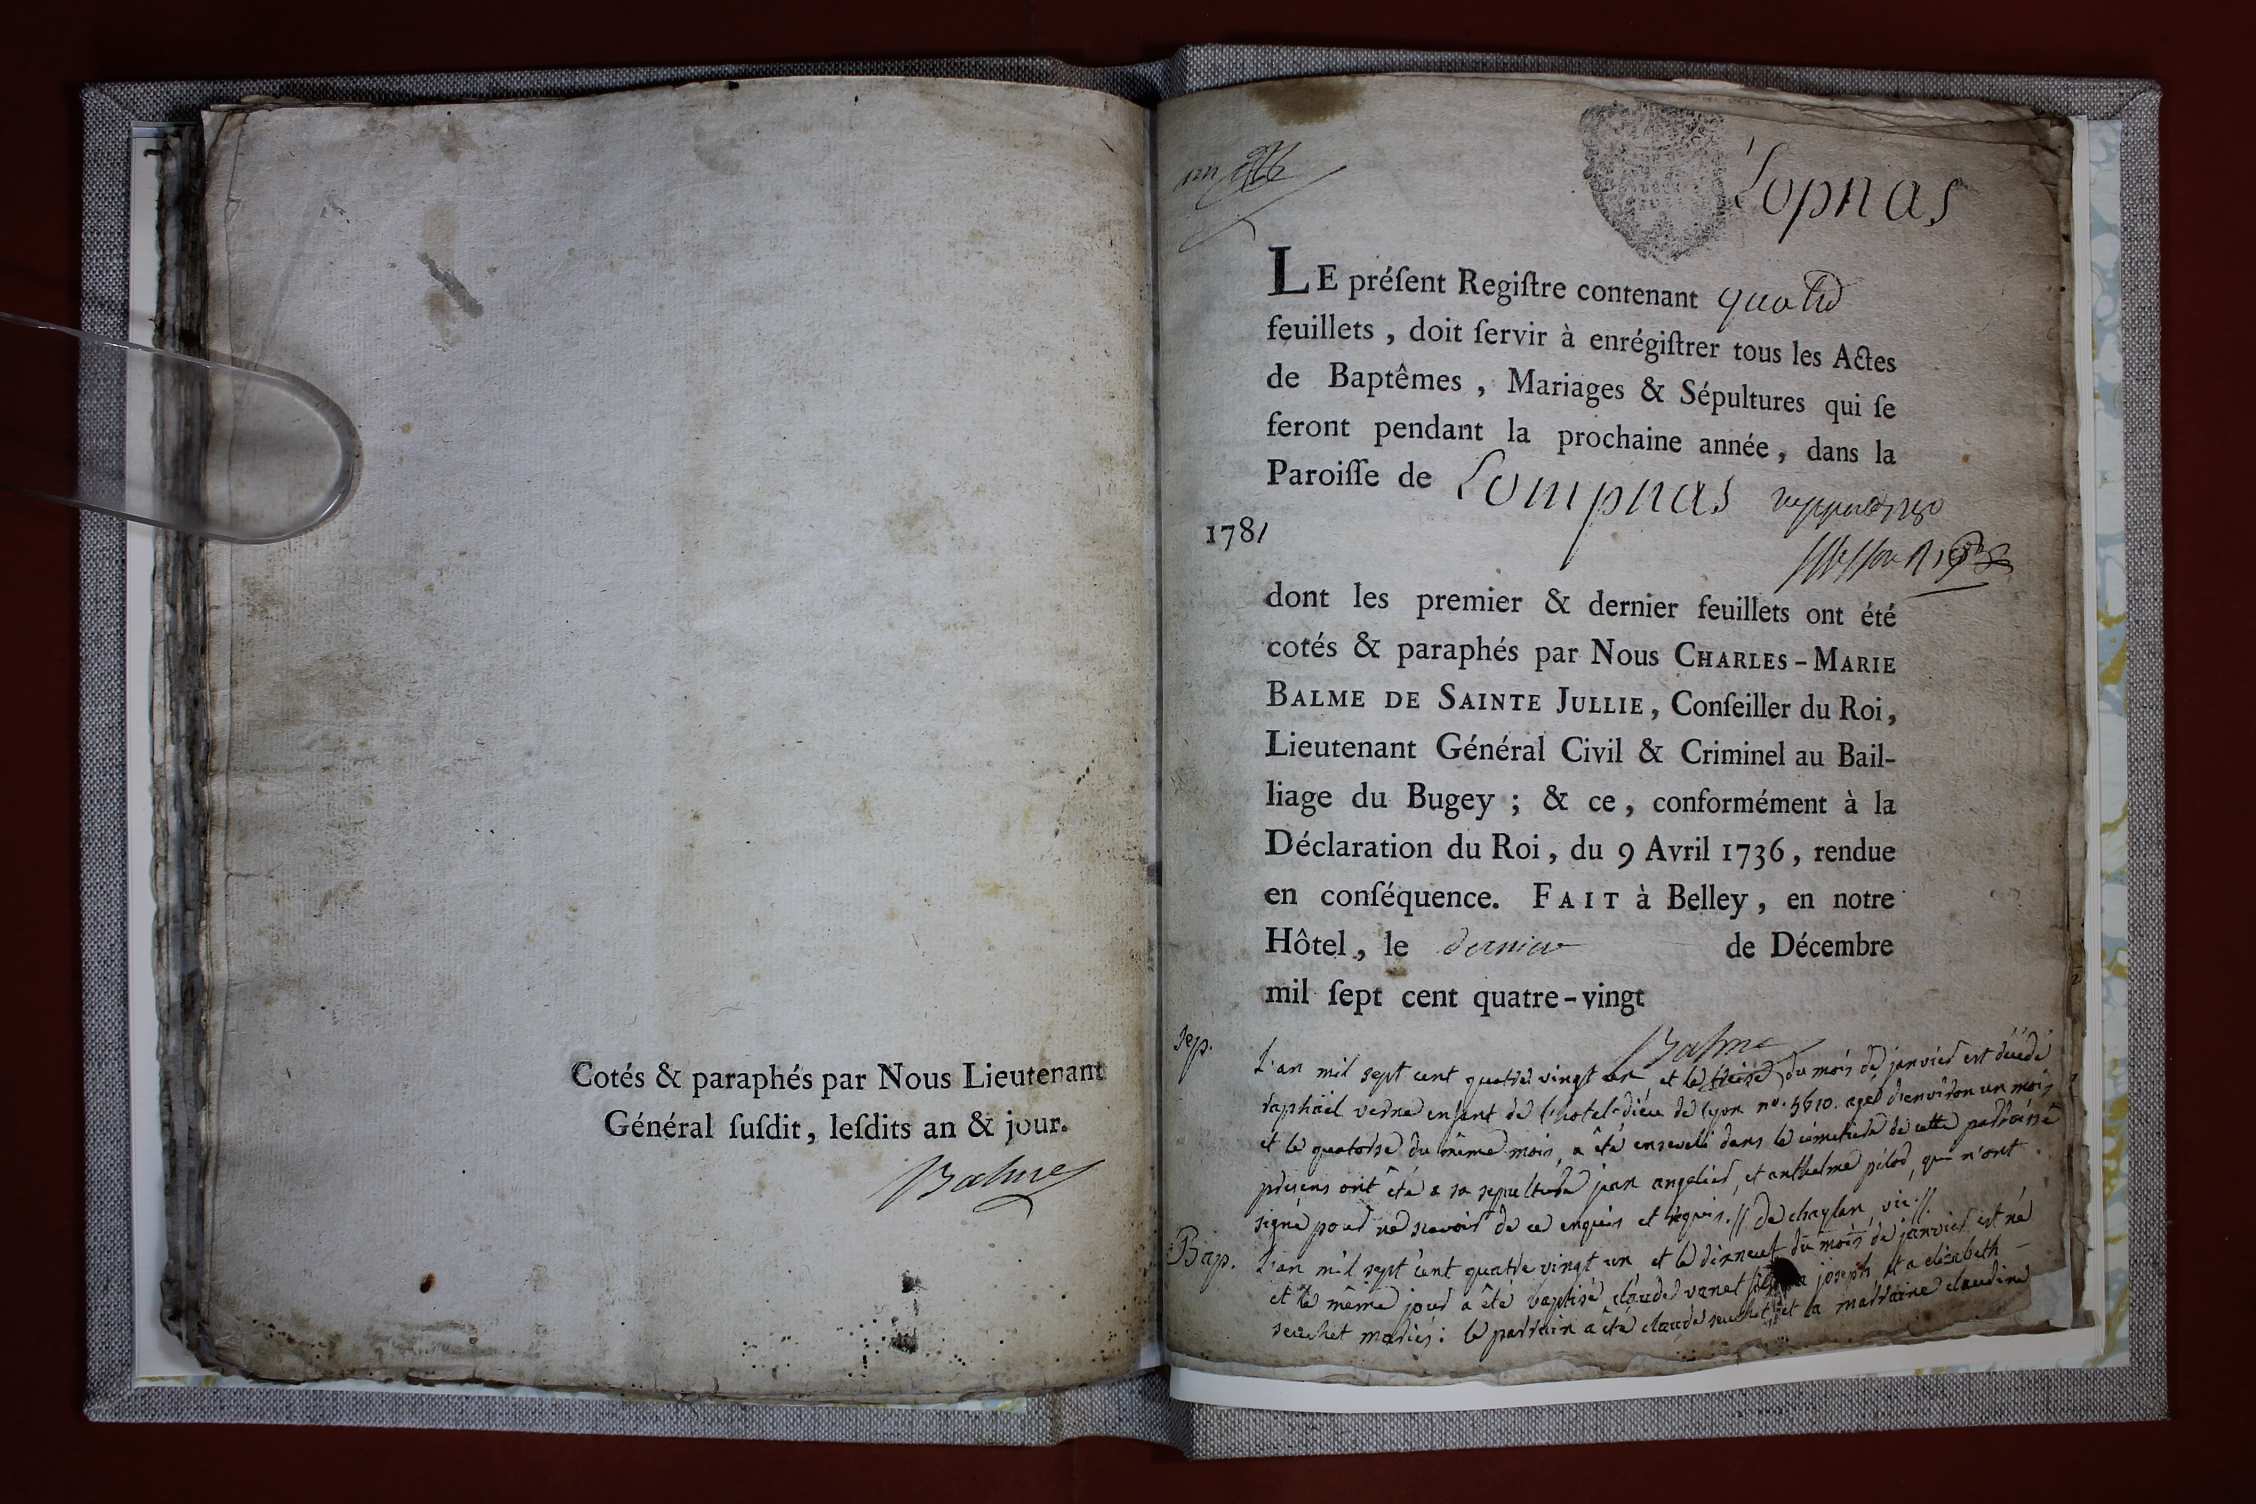 Cotés & paraphés par Nous Lieutenant
Général ſuſdit, leſdits an & jour.
Balme
Lopnas
LE préſent Regiſtre contenant quatre
feuillets, doit ſervir à enrégiſtrer tous les Actes
de Baptêmes, Mariages & Sépultures qui ſe
feront pendant la prochaine année, dans la
Paroiſſe de Lompnas
1781
dont les premier & dernier feuillets ont été
cotés & paraphés par Nous CHARLES-MARIE
BALME DE SAINTE JULLIE, Conſeiller du Roi,
Lieutenant Général Civil & Criminel au Bail-
liage du Bugey ; & ce, conformément à la
Déclaration du Roi, du 9 Avril 1736, rendue
en conſéquence. FAIT à Belley, en notre
Hôtel, le dernier de Décembre
mil ſept cent quatre-vingt
Balme
Sep.
L'an mil sept cent quatre vingt un et le treise du mois de janvier est décédé
raphäel verne enfant de l'hotel-dieu de lyon no. 5610. agé d'environ un mois
et le quatorse du même mois, a été enseveli dans le cimetiere de cette parroisse
presens ont été a sa sepulture jean angelier, et anthelme pilod, qui n'ont
signé pour ne scavoir de ce enquis et requis. // De chaylan vic. //
Bap.
L'an mil sept cent quatre vingt un et le dixneuf du mois de janvier est né
et le même jour a été baptisé claude vanet joseph et a elizabeth
seuchet mariés : le parrain a été claude seuchet, et la marraine claudine